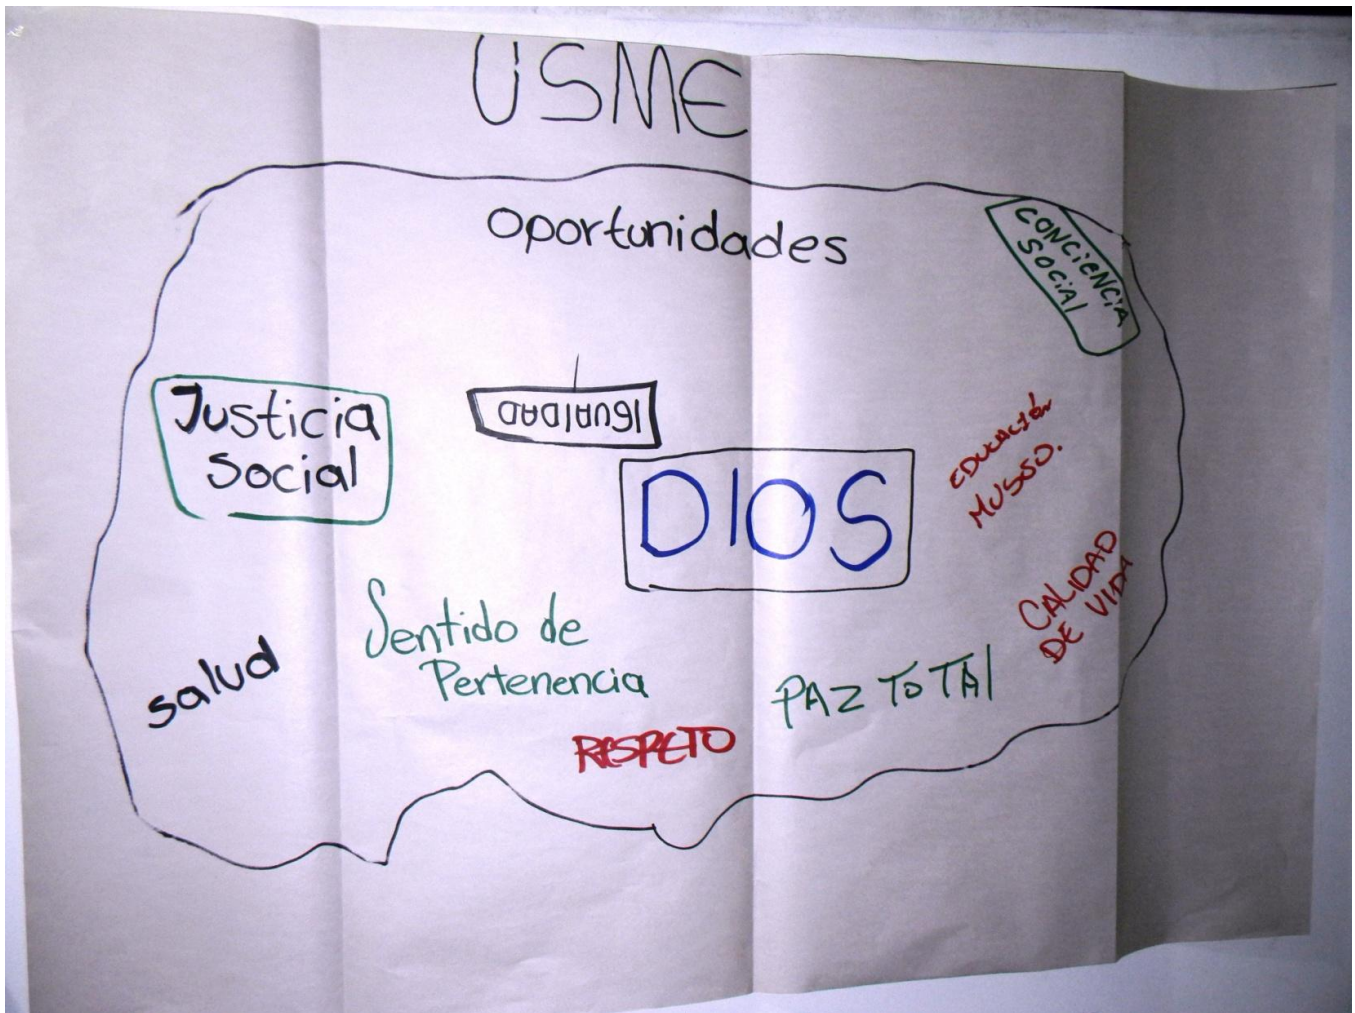 USME
oportunidades
CONCIENCIA
SOCIAL
Justicia
Social
IGUALDAD
DIOS
EDUCACIÓN
MUSSO.
CALIDAD
DE VIDA
Sentido de
Pertenencia
salud
PAZ TOTAL
RESPETO